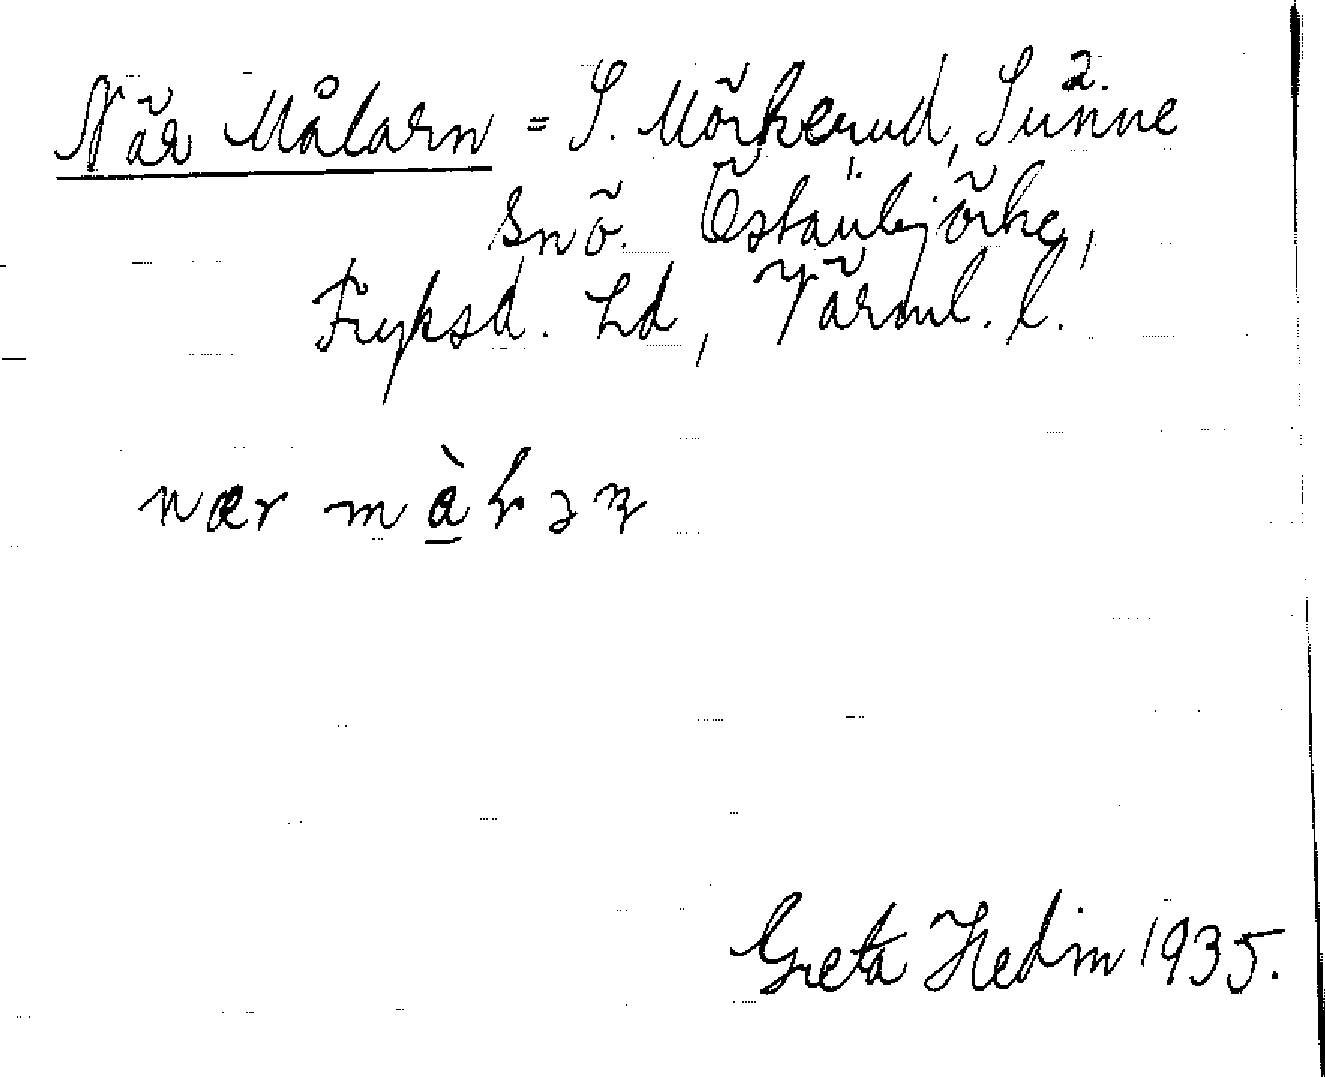 När Målarn = S. Mörkerud, 2. Sunne
snö. Östanbjörke,
Fryksd. hd, Värml. l.
nær m
Greta Hedin 1935.